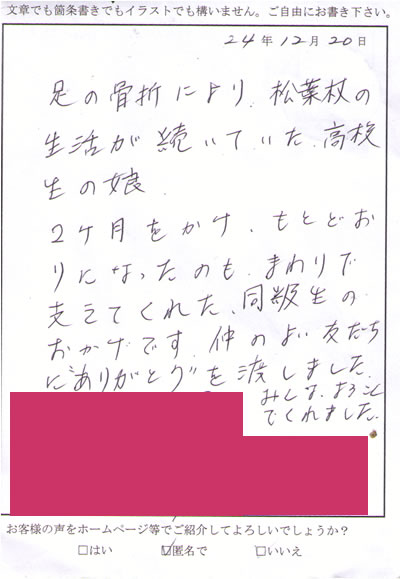 文章でも箇条書きでもイラストでも構いません。ご自由にお書き下さい。
24年12月20日
足の骨折により、松葉杖の
生活が続いていた、高校
生の娘
2ケ月をかけ、もとどお
りになったのも、まわりで
支えてくれた、同級生の
おかげです。仲のよい友だち
に"ありがとう"を渡しました。
みんな、よろこん
でくれました。
お客様の声をホームページ等でご紹介してよろしいでしょうか？
□はい ☑匿名で □いいえ